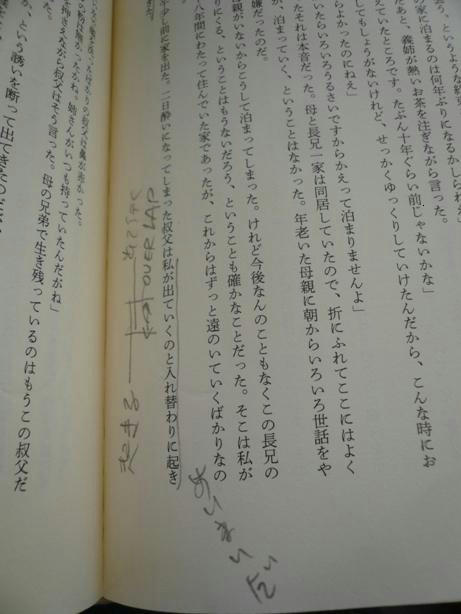 の家に泊まるのは何年ぶりになるかしらね」
だあと、義姉が熱いお茶を注ぎながら言った。
えていたところです。たぶん十年ぐらい前じゃないかな」
してもしょうがないけれど、せっかくゆっくりしていけたんだから、こんな時にお
らよかったのにねえ」
いたらいろいろうるさいですからかえって泊まりませんよ」
たそれは本音だった。母と長兄一家は同居していたので、折にふれてここにはよく
が、泊まっていく、ということはなかった。年老いた母親に朝からいろいろ世話をや
嫌だったのだ。
親がいないからこうして泊まってしまった。けれど今後なんのこともなくこの長兄の
りにくる、ということはもうないだろう、ということも確かなことだった。そこは私が
八年間にわたって住んでいた家であったが、これからはずっと遠のいていくばかりなの
少し前に家を出た。二日酔いになってしまった叔父は私が出ていくのと入れ替わりに起き
あいまい
OVER LAP
起きる
の叔父は鼻が赤かった。
姉さんがいつも持っていたんだがね」
押さえながら叔父はそう言った。母の兄弟で生き残っているのはもうこの叔父だ
か、という誘いを断って出てきたのだが、